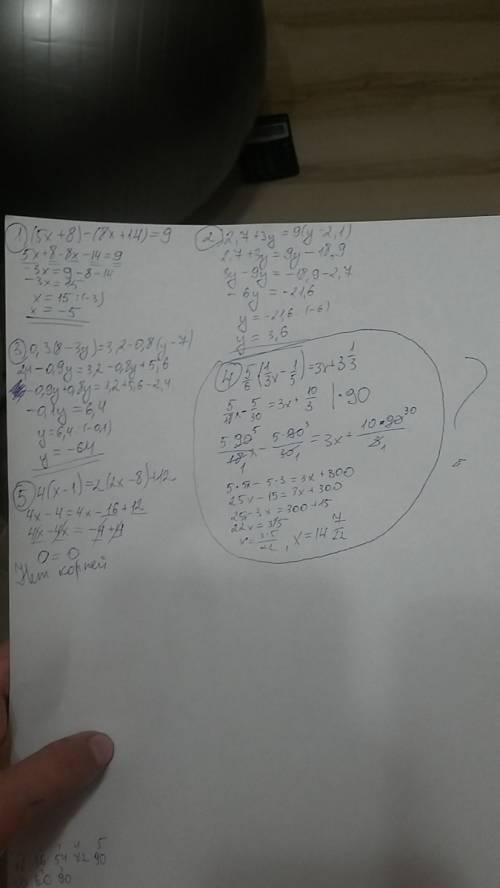 1 (5x+8)-(8x+14)=9
5x+8-8x-14=9
-3x=9-8-14
-3x=15
x=15:(-3)
x=-5
2 2,7+3y=9(y-2,1)
2,7+3y=9y-18,9
3y-9y=-18,9-2,7
-6y=-21,6
y=-21,6:(-6)
y=3,6
3 0,3(8-3y)=3,2-0,8(y-7)
2,4-0,9y=3,2-0,8y+5,6
-0,9y+0,8y=3,2+5,6-2,4
-0,1y=6,4
y=6,4:(-0,1)
y=-64
4 5/6(1/3x-1/5)=3x+3 1/3
5/18x-5/30=3x+10/3 |·90
5·90 5/18 1 x - 5·90 3/30 1 = 3x + 10·90 30/3 1
5·5x-5·3=3x+300
25x-15=3x+300
25x-3x=300+15
22x=315
x=315/22, x=14 7/22
?
5 4(x-1)=2(2x-8)+12
4x-4=4x-16+12
4x-4x=-4+4
0=0
Нет корней
54 72 90
60 90